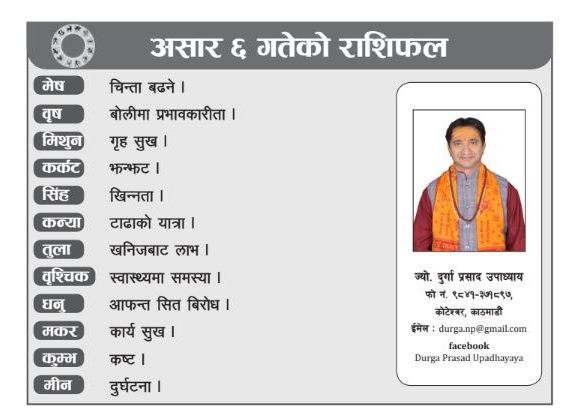 असार ६ गतेको राशिफल
मेष चिन्ता बढ्ने ।
वृष बोलीमा प्रभावकारीता ।
मिथुन गृह सुख ।
कर्कट झन्झट ।
सिंह खिन्नता ।
कन्या टाढाको यात्रा ।
तुला खनिजबाट लाभ ।
वृश्चिक स्वास्थ्यमा समस्या ।
धनु आफन्त सित बिरोध ।
मकर कार्य सुख ।
कुम्भ कष्ट ।
मीन दुर्घटना ।
ज्यो. दुर्गा प्रसाद उपाध्याय
फो नं. ९८४१-३७१८९७,
कोटेश्वर, काठमाडौं
ईमेल : durga.np@gmail.com
facebook
Durga Prasad Upadhayaya